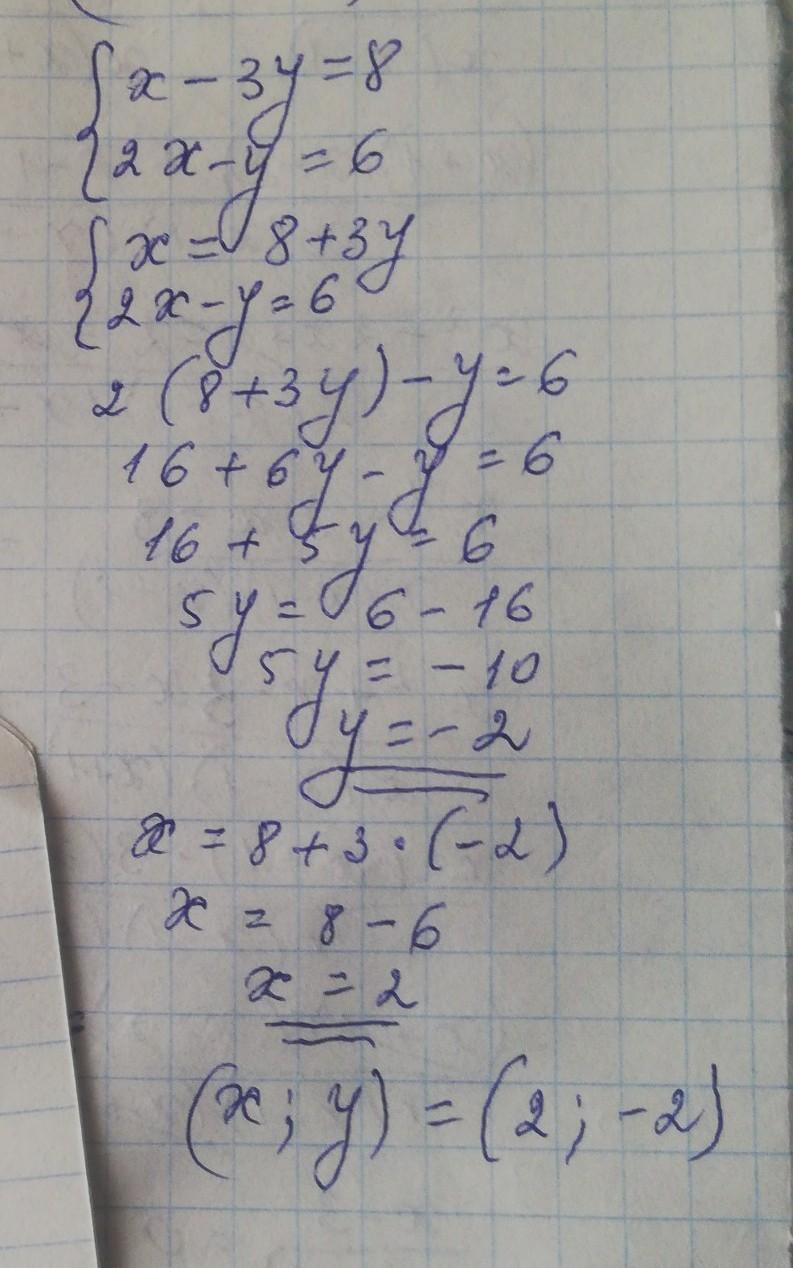 x - 3y = 8
2x - y = 6
x = 8 + 3y
2x - y = 6
2 (8 + 3y) - y = 6
16 + 6y - y = 6
16 + 5y = 6
5y = 6 - 16
5y = -10
y = -2
x = 8 + 3 · (-2)
x = 8 - 6
x = 2
(x; y) = (2; -2)